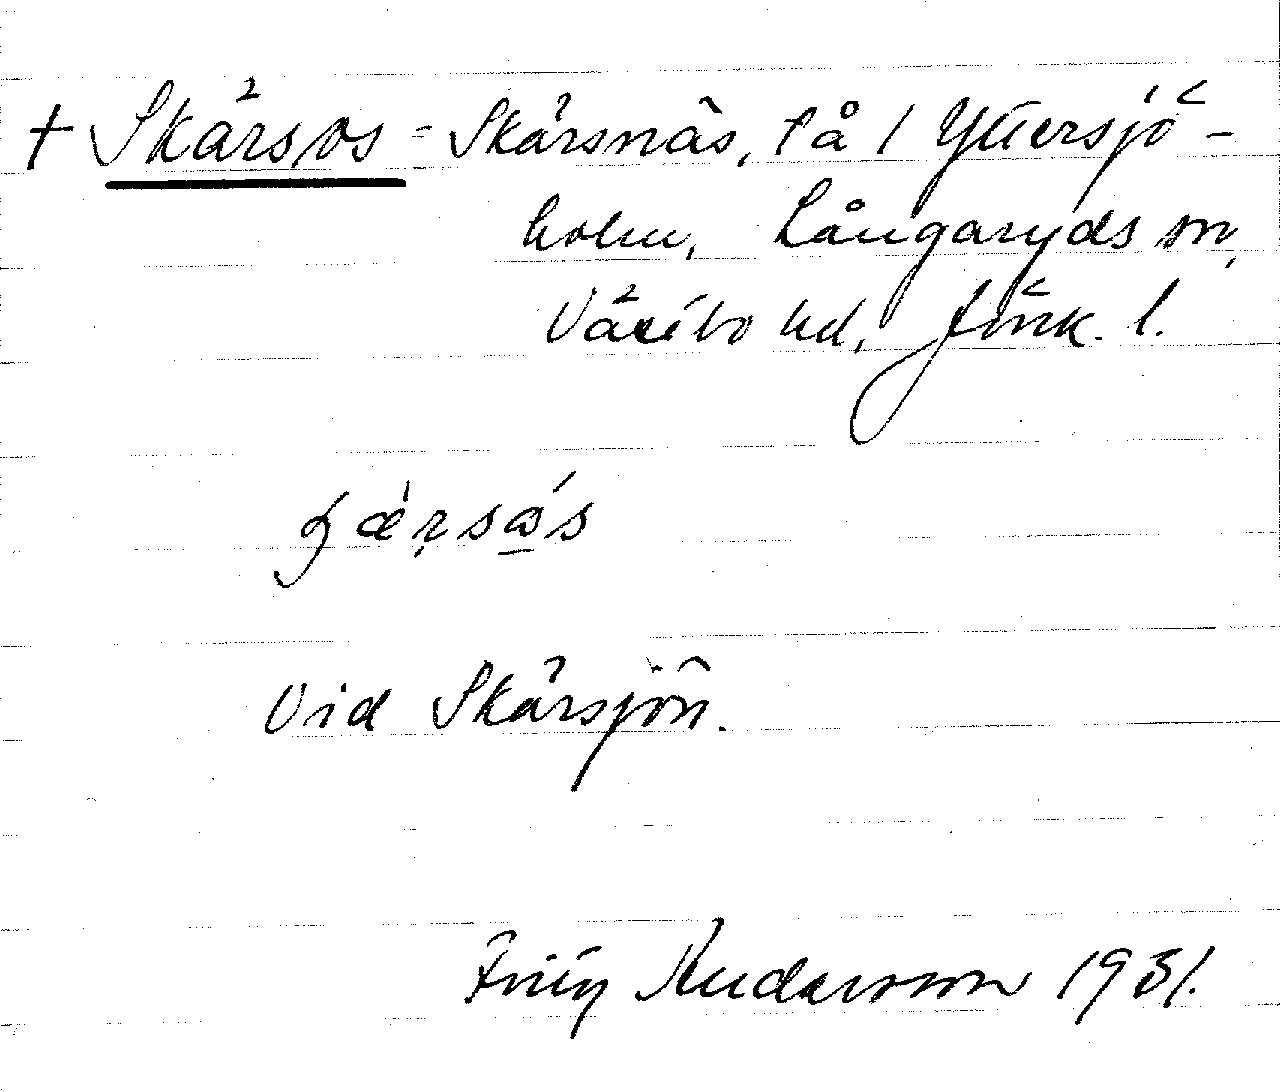 † Skärsos = Skärsnäs, på / Yttersjö-
holm, Långaryds sn,
Västbo hd, Jönk. l.
Vid Skärsjön.
Andersson 1931.